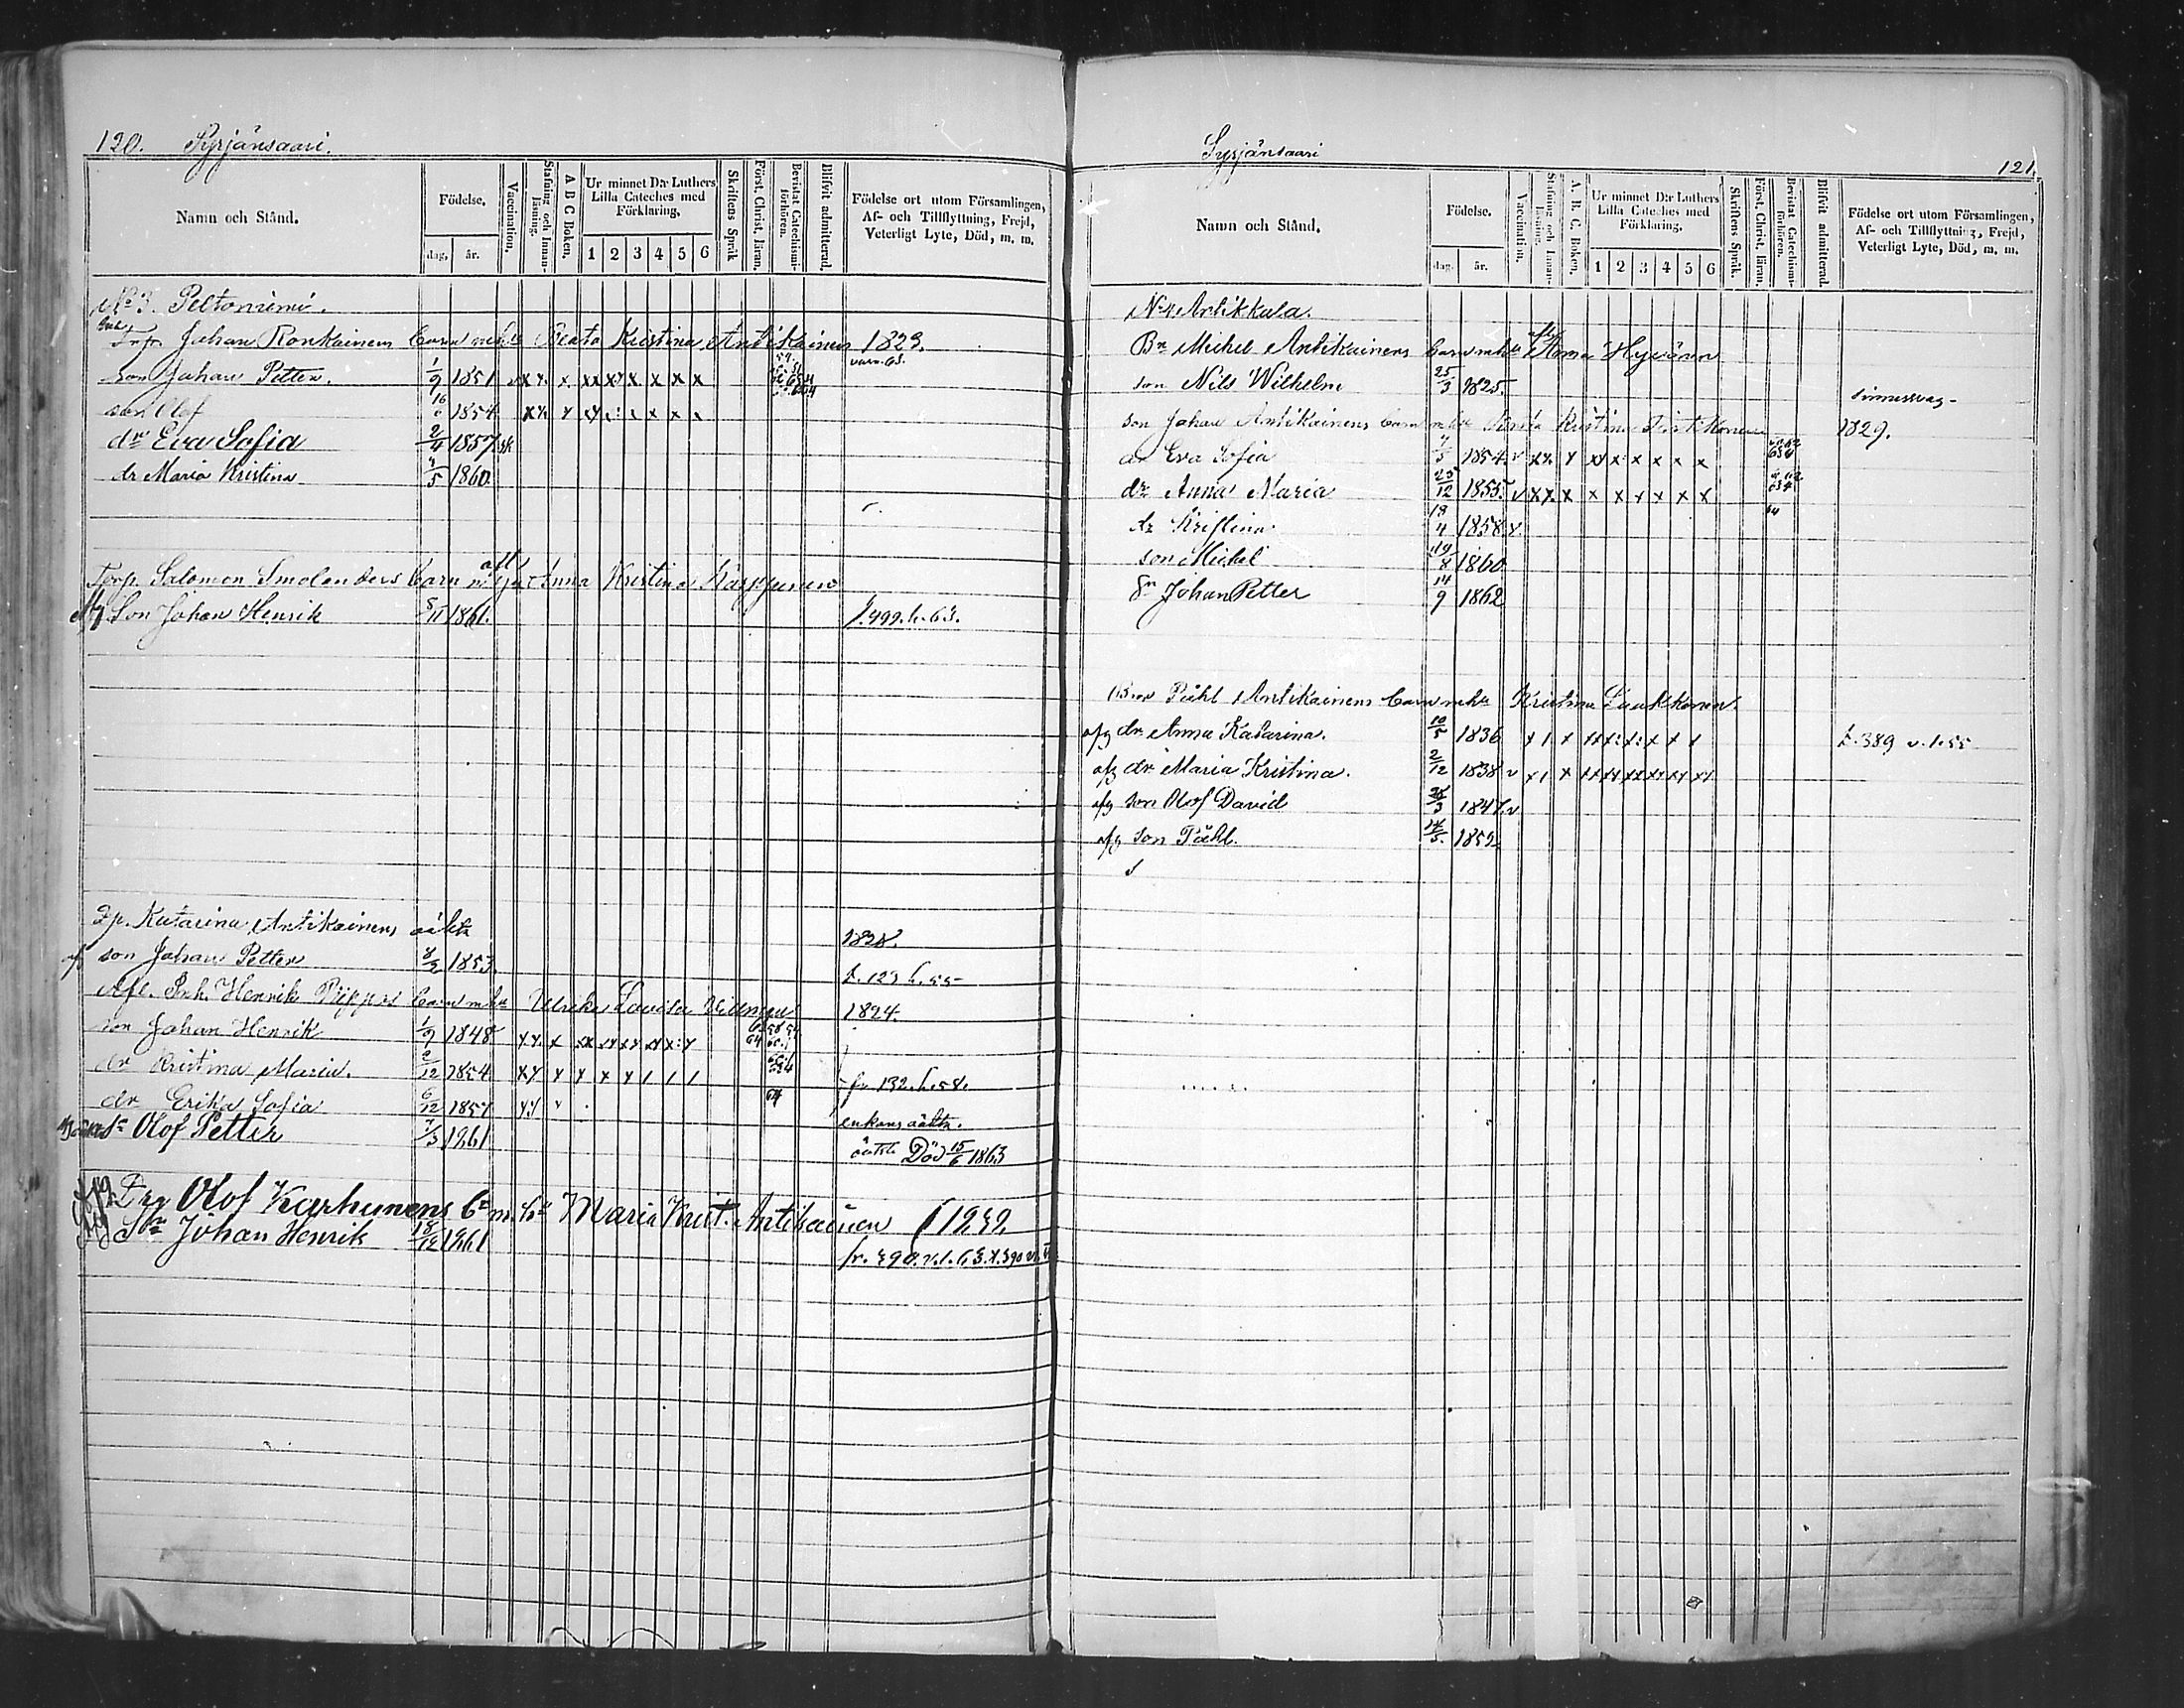 120. Syrjänsaari.
Namn och Stånd.
Födelse.
dag, år.
Vaccination.
Stafning och Innan-läsning.
A B C Boken.
Ur minnet D:r Luthers Lilla Cateches med Förklaring.
1 2 3 4 5 6
Skriftens Språk
Först. Christ. läran.
Bevistat Catechismi-förhören.
Blifvit admitterad.
Födelse ort utom Församlingen, Af- och Tillflyttning, Frejd, Veterligt Lyte, Död, m. m.
No 3. Peltoniemi.
Johan Ronkainens barn m hu Beata Kristina Antikainen 1829.
son Johan Petter. 1/9 1851 v x x. x xx x x x x x
son Olof 16 1854
dr Eva Sofia 2/4 1857. sk
dr Maria Kristina 4/5 1860
Torp. Salomon Smolanders barn Anna Kristina Karppunen
Son Johan Henrik 5/11 1861. f. 499. h. 63.
Katarina Antikainens oäkta 1828.
son Johan Petter 1853. t. 123 h. 55
Afl. Inh. Henrik Piippos barn m hu Ulrika Lovisa 1824.
son Johan Henrik 1/9 1848
dr Kristina Maria. 2/12 1854 fr 132. h. 58.
dr Erika Sofia 6/12 1857 enkans oäkta.
sn Olof Petter 4/3 1861 oäkta Död 15/6 1863
Drg Olof Karhunens bn m. hu Maria Krist. Antikainen
Sn Johan Henrik 18/12 1861 fr. 390. v. l. 63.
Syrjänsaari
121.
Namn och Stånd.
Födelse.
dag. år.
Vaccination.
Stafning och Innan-läsning.
A. B. C. Boken.
Ur minnet D:r Luthers Lilla Cateches med Förklaring.
1 2 3 4 5 6
Skriftens Språk.
Först. Christ. läran.
Bevistat Catechismi-förhören.
Blifvit admitterad.
Födelse ort utom Församlingen, Af- och Tillflyttning, Frejd, Veterligt Lyte, Död, m. m.
No 4. Antikkala.
Bn Michel Antikainens barn m hu Anna Hyvönen
son Nils Wilhelm 25/3 1825. sinnessvag
son Johan Antikainens barn m hu Kristina 1829.
dr Eva Sofia 1854. v xx. x xx x x x x x
dr Anna Maria 25/12 1855. v xx. x x x x x x x
dr Kristina 18/4 1858. v.
son Michel 19/8 1860
Sn Johan Petter 14/9 1862
Påhl Antikainens barn m hu Kristina Laakkonen.
afg dr Anna Katarina. 10/5 1836 t. 389 v. l. 55
afg dr Maria Kristina. 2/12 1838 v
afg son Olof David 1847. v
afg son Påhl. 14/5. 1852